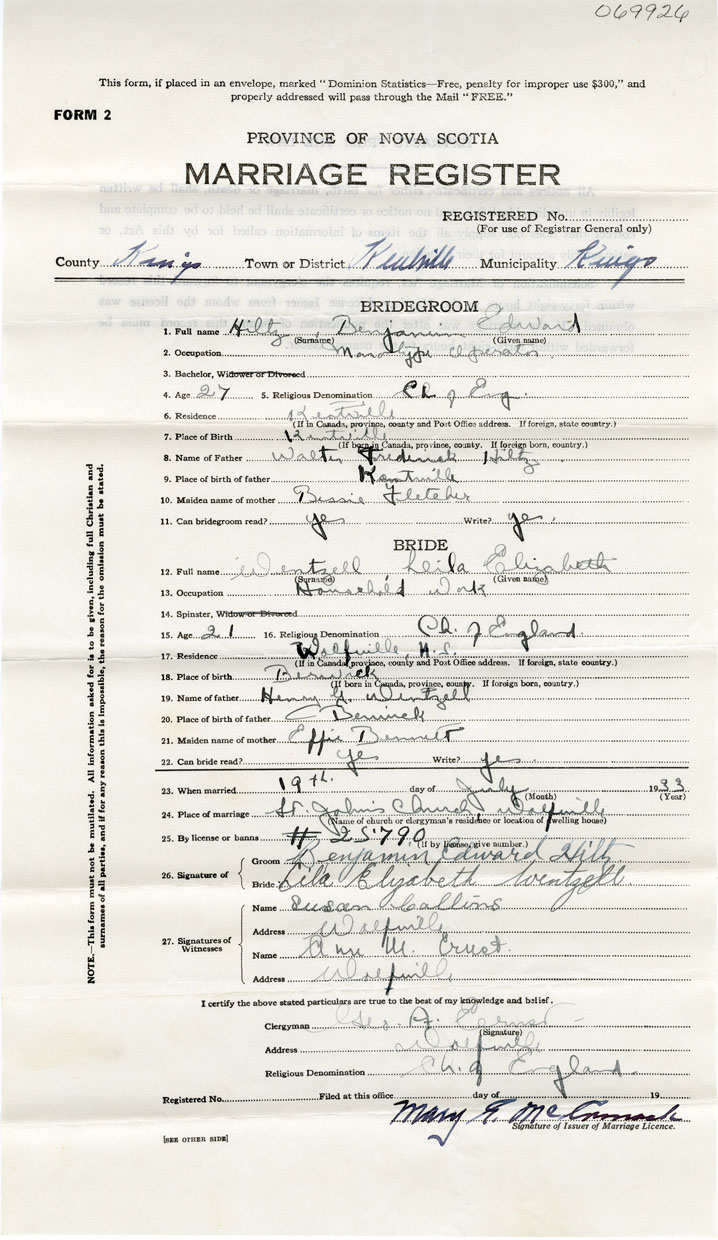 069926
This form, if placed in an envelope, marked "Dominion Statistics—Free, penalty for improper use $300," and
properly addressed will pass through the Mail "FREE."
FORM 2
PROVINCE OF NOVA SCOTIA
MARRIAGE REGISTER
REGISTERED No.
(For use of Registrar General only)
County Kings Town or District Kentville Municipality Kings
BRIDEGROOM
1. Full name Hiltz, Benjamin Edward
(Surname) (Given name)
2. Occupation Monotype Operator
3. Bachelor, Widower or Divorced
4. Age 27 5. Religious Denomination Ch of Eng.
6. Residence Kentville
(If in Canada, province, county and Post Office address. If foreign, state country.)
7. Place of Birth Kentville
(If born in Canada, province, county. If foreign born, country.)
8. Name of Father Walter Frederick Hiltz
9. Place of birth of father Kentville
10. Maiden name of mother Bessie Fletcher
11. Can bridegroom read? yes Write? yes.
BRIDE
12. Full name Wentzell Leila Elizabeth
(Surname) (Given name)
13. Occupation Household Work
14. Spinster, Widowed or Divorced
15. Age 21 16. Religious Denomination Ch. of England.
17. Residence Wolfville, N.S.
(If in Canada province, county and Post Office address. If foreign, state country.)
18. Place of birth Berwick
(If born in Canada, province, county. If foreign born, country.)
19. Name of father Henry Wentzell
20. Place of birth of father Berwick
21. Maiden name of mother Effie Bennett
22. Can bride read? yes Write? yes.
23. When married 19th. day of July 1933
(Month) (Year)
24. Place of marriage St. John's Church, Wolfville
(Name of church or clergyman's residence or location of dwelling house)
25. By license or banns # 25790
(If by license, give number.)
26. Signature of
Groom Benjamin Edward Hiltz
Bride Lila Elyzabeth Wentzell.
27. Signatures of Witnesses
Name Susan Collins
Address Wolfville
Name M. Ernst.
Address Wolfville
I certify the above stated particulars are true to the best of my knowledge and belief.
Clergyman Geo. A. Ernst
(Signature)
Address Wolfville
Religious Denomination Ch. of England.
Registered No. Filed at this office day of 19
Mary E. McCormack
Signature of Issuer of Marriage Licence.
[SEE OTHER SIDE]
NOTE.—This form must not be mutilated. All information asked for is to be given, including full Christian and
surnames of all parties, and if for any reason this is impossible, the reason for the omission must be stated.